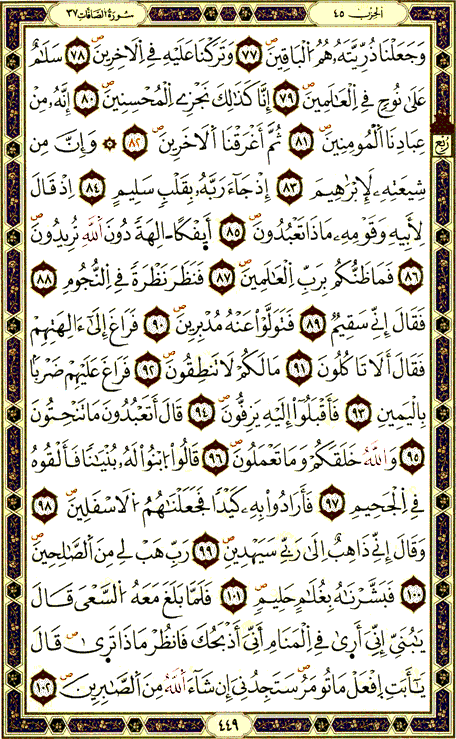 الحزب ٤٥ سورة الصافات ٣٧
وَجَعَلْنَا ذُرِّيَّتَهُۥ هُمُ الْبَاقِينَ ٧٧ وَتَرَكْنَا عَلَيْهِ فِي الَاخِرِينَ ٧٨ سَلَٰمٌ
عَلَىٰ نُوحٍ فِي الْعَٰلَمِينَ ٧٩ إِنَّا كَذَٰلِكَ نَجْزِي الْمُحْسِنِينَ ٨٠ إِنَّهُۥ مِنْ
عِبَادِنَا الْمُومِنِينَ ٨١ ثُمَّ أَغْرَقْنَا الَاخَرِينَ ٨٢ ۞ وَإِنَّ مِن
ربع
شِيعَتِهِۦ لَإِبْرَٰهِيمَ ٨٣ إِذْ جَآءَ رَبَّهُۥ بِقَلْبٍ سَلِيمٍ ٨٤ إِذْ قَالَ
لِأَبِيهِ وَقَوْمِهِۦ مَاذَا تَعْبُدُونَ ٨٥ أَيفْكًا ـالِهَةً دُونَ اَللَّهِ تُرِيدُونَ
٨٦ فَمَا ظَنُّكُم بِرَبِّ الْعَٰلَمِينَ ٨٧ فَنَظَرَ نَظْرَةً فِي النُّجُومِ ٨٨
فَقَالَ إِنِّي سَقِيمٌ ٨٩ فَتَوَلَّوْاْ عَنْهُ مُدْبِرِينَ ٩٠ فَرَاغَ إِلَىٰٓ ءَالِهَتِهِمْ
فَقَالَ أَلَا تَاكُلُونَ ٩١ مَا لَكُمْ لَا تَنطِقُونَ ٩٢ فَرَاغَ عَلَيْهِمْ ضَرْبًا
بِالْيَمِينِ ٩٣ فَأَقْبَلُواْ إِلَيْهِ يَزِفُّونَ ٩٤ قَالَ أَتَعْبُدُونَ مَا تَنْحِتُونَ
٩٥ وَاللَّهُ خَلَقَكُمْ وَمَا تَعْمَلُونَ ٩٦ قَالُواْ اُبْنُواْ لَهُۥ بُنْيَٰنًا فَأَلْقُوهُ
فِي الْجَحِيمِ ٩٧ فَأَرَادُواْ بِهِۦ كَيْدًا فَجَعَلْنَٰهُمُ الَاسْفَلِينَ ٩٨
وَقَالَ إِنِّي ذَاهِبٌ اِلَىٰ رَبِّي سَيَهْدِينِ ٩٩ رَبِّ هَبْ لِي مِنَ الصَّٰلِحِينَ
١٠٠ فَبَشَّرْنَٰهُ بِغُلَٰمٍ حَلِيمٍ ١٠١ فَلَمَّا بَلَغَ مَعَهُ السَّعْيَ قَالَ
يَٰبُنَيِّ إِنِّيَ أَرَىٰ فِي الْمَنَامِ أَنِّيَ أَذْبَحُكَ فَانظُرْ مَاذَا تَرَىٰ قَالَ
يَٰٓأَبَتِ اِفْعَلْ مَا تُومَرُ سَتَجِدُنِيَ إِن شَآءَ اَللَّهُ مِنَ الصَّٰبِرِينَ ١٠٢
٤٤٩